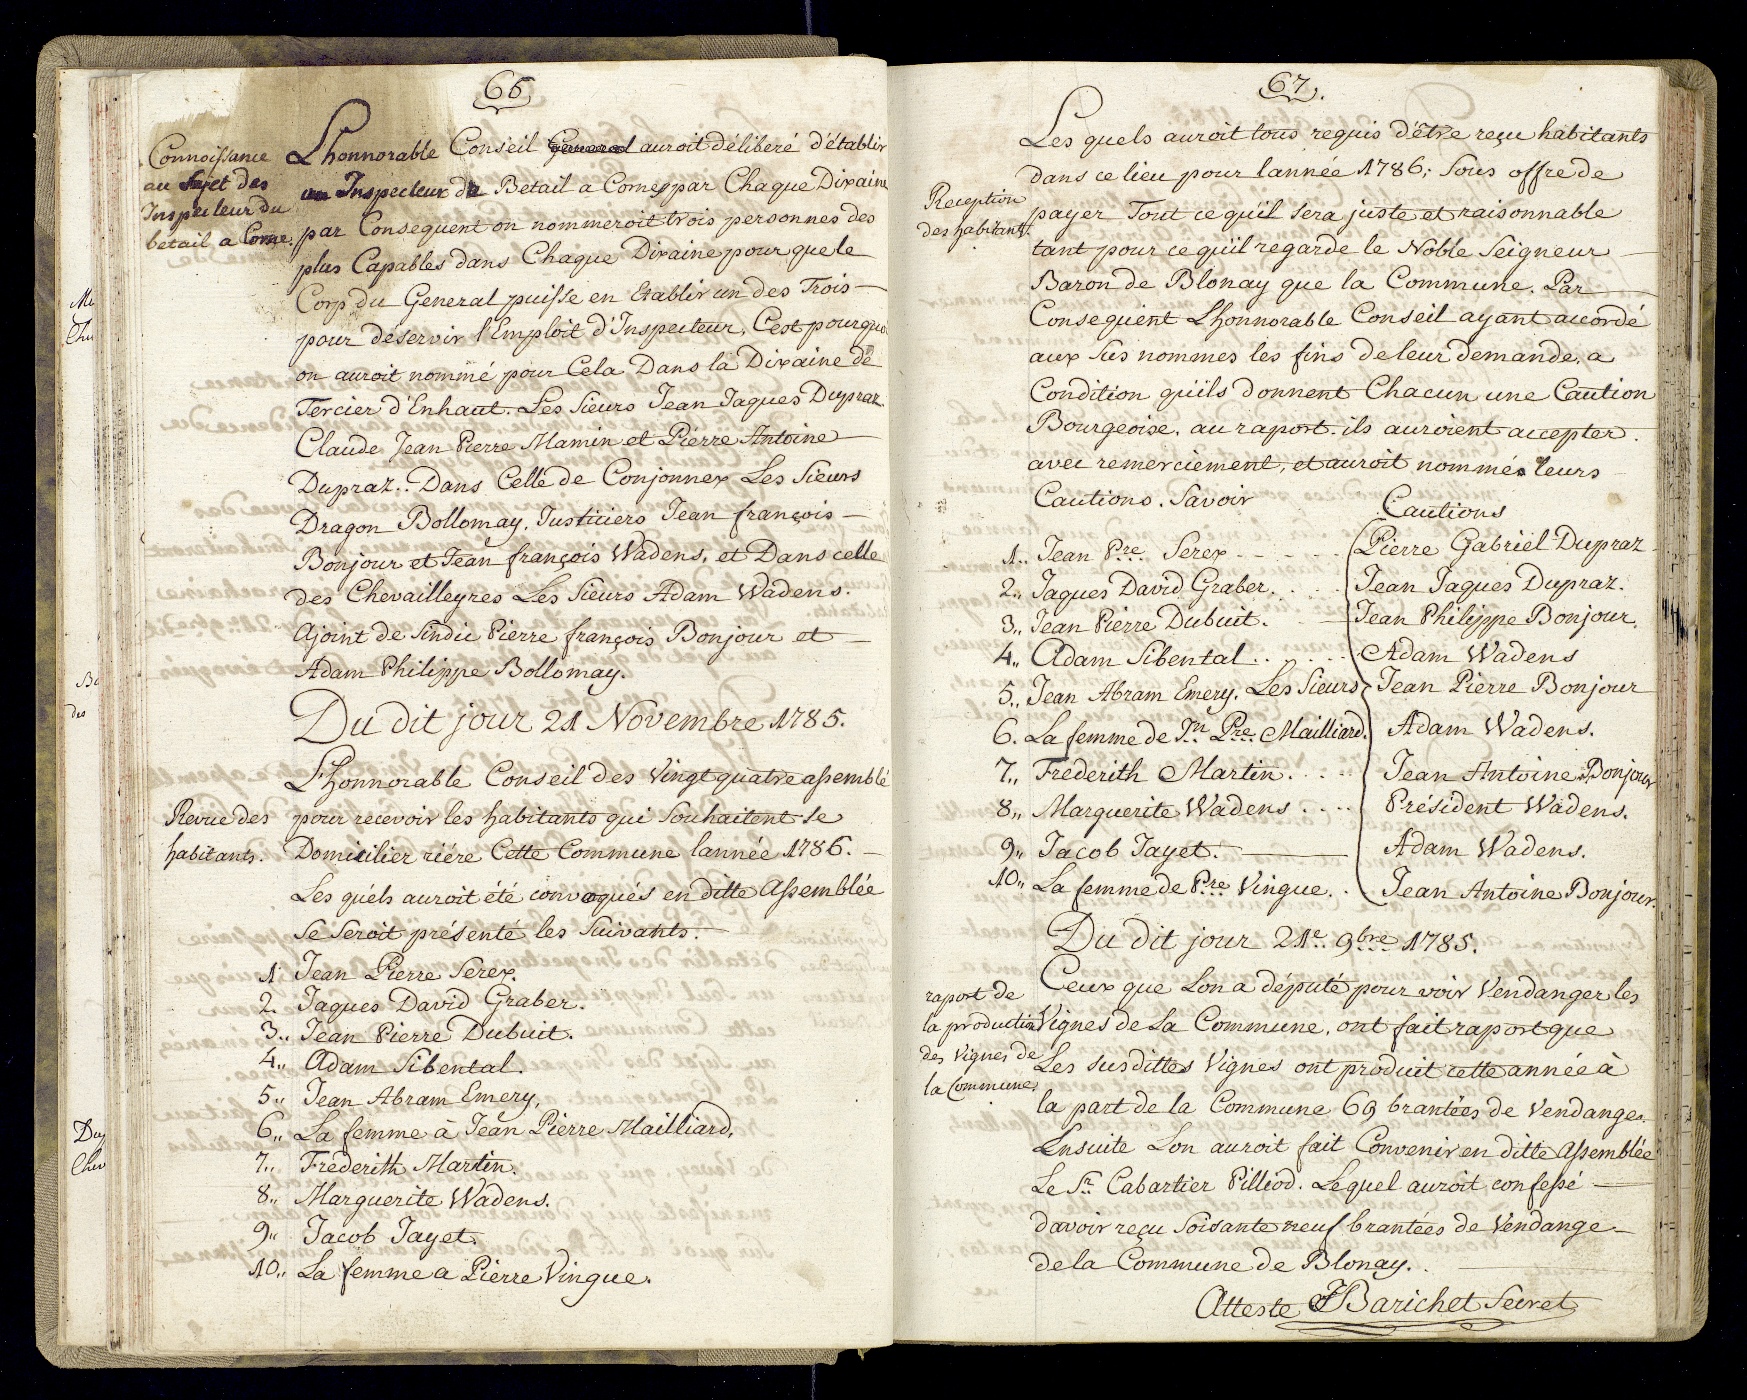 66
Connoissance
au Sujet des
Inspecteur du
betail a Corne.
Lhonnorable Conseil General auroit déliberé d'établir
un Inspecteur de Betail a Cornes par Chaque Dixaine
par Consequent on nommeroit trois personnes des
plus Capables dans Chaque Dixaine pour que le
Corp du General puisse en Etablir un des Trois
pour déservir l'Emploit d'Inspecteur, C'est pourquoi
on auroit nommé pour Cela Dans la Dixaine de
Tercier d'Enhaut. Les Sieurs Jean Jaques Dupraz
Claude Jean Pierre Mamin et Pierre Antoine
Dupraz.. Dans Celle de Conjonnex Les Sieurs
Dragon Bollomay, Justiciers Jean françois
Bonjour et Jean françois Wadens, et Dans celle
des Chevailleyres Les Sieurs Adam Wadens.
Ajoint de Sindic Pierre françois Bonjour et
Adam Philippe Bollomay.
Du dit jour 21 Novembre 1785.
Revue des
habitants.
L'honnorable Conseil des Vingt quatre assemblé
pour recevoir les habitants qui Souhaitent se
Domicilier riére Cette Commune lannée 1786.
Les quéls auroit été convoqués en ditte Assemblée
Se Seroit présenté les Suivants.
1. Jean Pierre Serex.
2. Jaques David Graber.
3.. Jean Pierre Dubuit.
4.. Adam Sibental.
5.. Jean Abram Emery,
6.. La femme à Jean Pierre Mailliard,
7.. Fréderith Martin.
8.. Marguerite Wadens.
9.. Jacob Jayet.
10.. La femme a Pierre Vingue.
67.
Reception
des habitants.
Les quels auroit tous requis d'être reçu habitants
dans ce lieu pour lannée 1786; Sous offre de
payer Tout ce qu'il sera juste et raisonnable
tant pour ce qu'il regarde le Noble Seigneur
Baron de Blonay que la Commune. Par
Consequent L'honnorable Conseil ayant accordé
aux Sus nommes les fins de leur demande, a
Condition qu'ils donnent Chacun une Caution
Bourgeoise. au raport. ils auroient accepter.
avec remerciement, et auroit nommés leurs
Cautions. Savoir Cautions
1.. Jean Pre Serex - - - - Pierre Gabriel Dupraz
2.. Jaques David Graber. . . . Jean Jaques Dupraz.
3.. Jean Pierre Dubuit. Jean Philippe Bonjour.
4.. Adam Sibental . . . . . . Adam Wadens
5.. Jean Abram Emery. Les Sieurs Jean Pierre Bonjour
6. La femme de Jn Pre Mailliard. Adam Wadens.
7.. Fréderith Martin. . . . Jean Antoine Bonjour
8.. Marguerite Wadens . . . . Président Wadens.
9.. Jacob Jayet. Adam Wadens.
10.. La femme de Pre Vingue. . Jean Antoine Bonjour.
Du dit jour 21e. 9bre 1785.
raport de
la production
des Vignes de
la Commune
Ceux que Lon a député pour voir Vendanger les
Vignes de La Commune, ont fait raport que
Les susdittes Vignes ont produit cette année à
la part de la Commune 69 brantées de Vendange.
Ensuite Lon auroit fait Convenir en ditte Assemblée
Le Sr Cabartier Pilliod. Lequel auroit confessé
davoir reçu Soisante neuf brantées de Vendange
de la Commune de Blonay.
Atteste JBarichet Secret